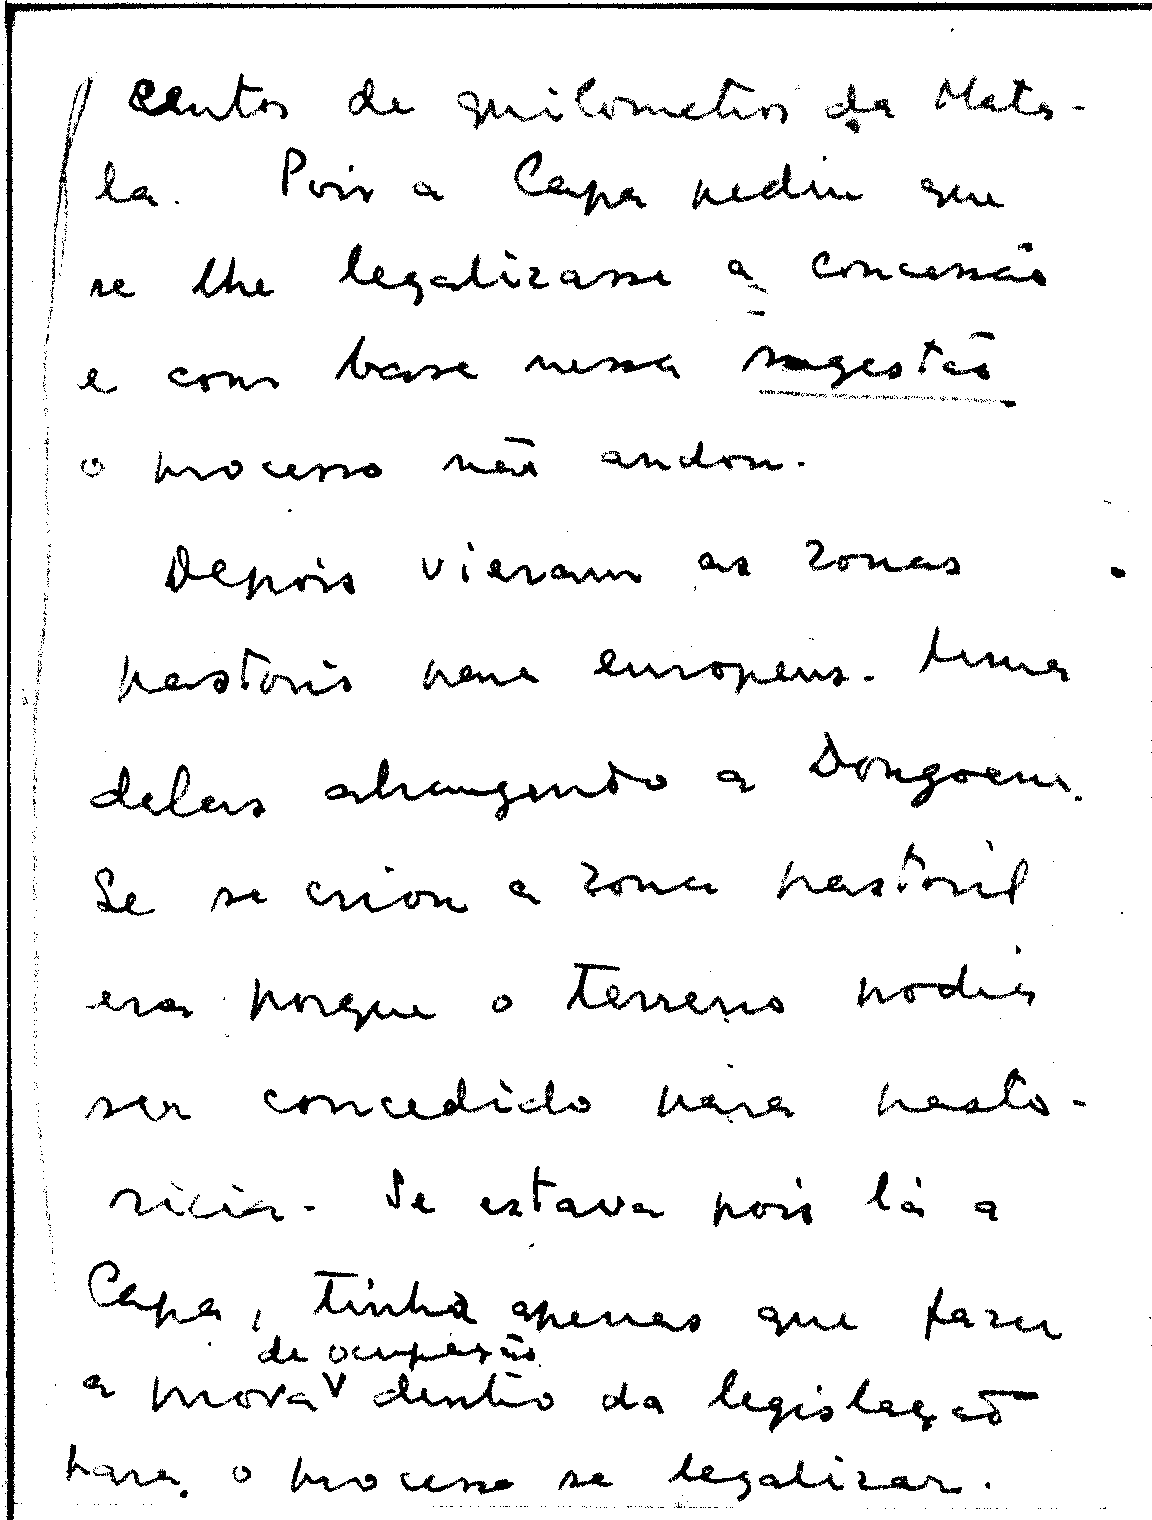 centos de quilometros da Mata-
la. Pois a Capa pediu que
se lhe legalizasse a concessão
e com base nessa sugestão
o processo não andou.
Depois vieram as zonas
pastoris para europeus. Numa
delas abrangendo a Dongoena.
Se se criou a zona pastoril
era porque o terreno podia
ser concedido para pasto-
ricia. Se estava pois lá a
Capa, tinha apenas que fazer
de ocupação
a prova v dentro da legislação
para o processo se legalizar.